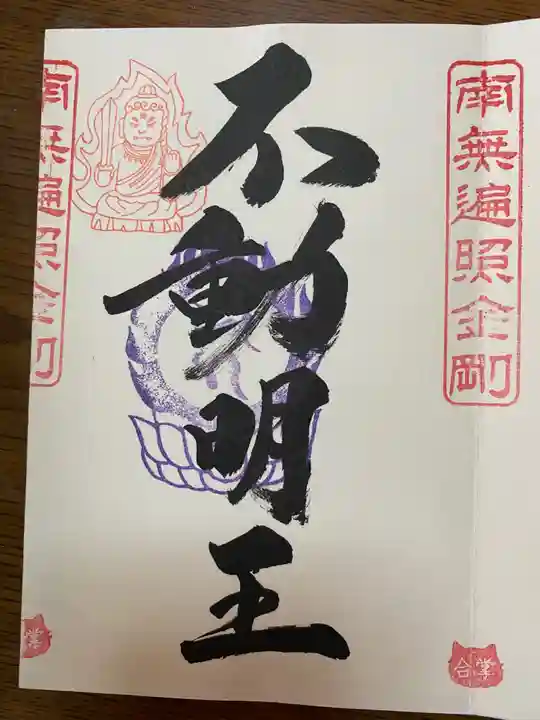 南無遍照金剛
合掌
不動明王
南無遍照金剛
掌